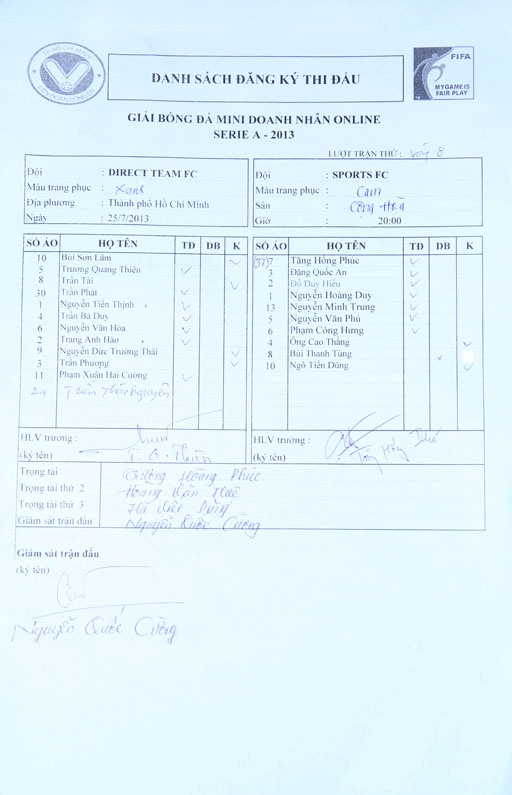 TP. HỒ CHÍ MINH
LIÊN ĐOÀN BÓNG ĐÁ
DANH SÁCH ĐĂNG KÝ THI ĐẤU
FIFA
MY GAME IS
FAIR PLAY
GIẢI BÓNG ĐÁ MINI DOANH NHÂN ONLINE
SERIE A - 2013
LƯỢT TRẬN THỨ : vòng 8
Đội : DIRECT TEAM FC
Màu trang phục : Xanh
Địa phương : Thành phố Hồ Chí Minh
Ngày : 25/7/2013
Đội : SPORTS FC
Màu trang phục : Cam
Sân : Cộng Hòa
Giờ : 20:00
SỐ ÁO HỌ TÊN TĐ DB K
10 Bùi Sơn Lâm
5 Trương Quang Thiên
8 Trần Tài
30 Trần Phát
1 Nguyễn Tiến Thịnh
4 Trần Bá Duy
6 Nguyễn Văn Hòa
2 Trang Anh Hào
9 Nguyễn Đức Trường Thái
3 Trần Phượng
11 Phạm Xuân Hải Cường
Trần Thái Nguyên
SỐ ÁO HỌ TÊN TĐ DB K
(37)7 Tăng Hồng Phúc
3 Đặng Quốc An
2 Đỗ Duy Hiếu
1 Nguyễn Hoàng Duy
13 Nguyễn Minh Trung
5 Nguyễn Văn Phú
6 Phạm Công Hưng
4 Ông Cao Thắng
8 Bùi Thanh Tùng
10 Ngô Tiến Dũng
HLV trưởng :
(ký tên)
HLV trưởng :
(ký tên)
Trọng tài Trương Hoàng Phúc
Trọng tài thứ 2 Hoàng Văn Huê
Trọng tài thứ 3 Hà Việt Dũng
Giám sát trận đấu Nguyễn Quốc Cường
Giám sát trận đấu
(ký tên)
Nguyễn Quốc Cường